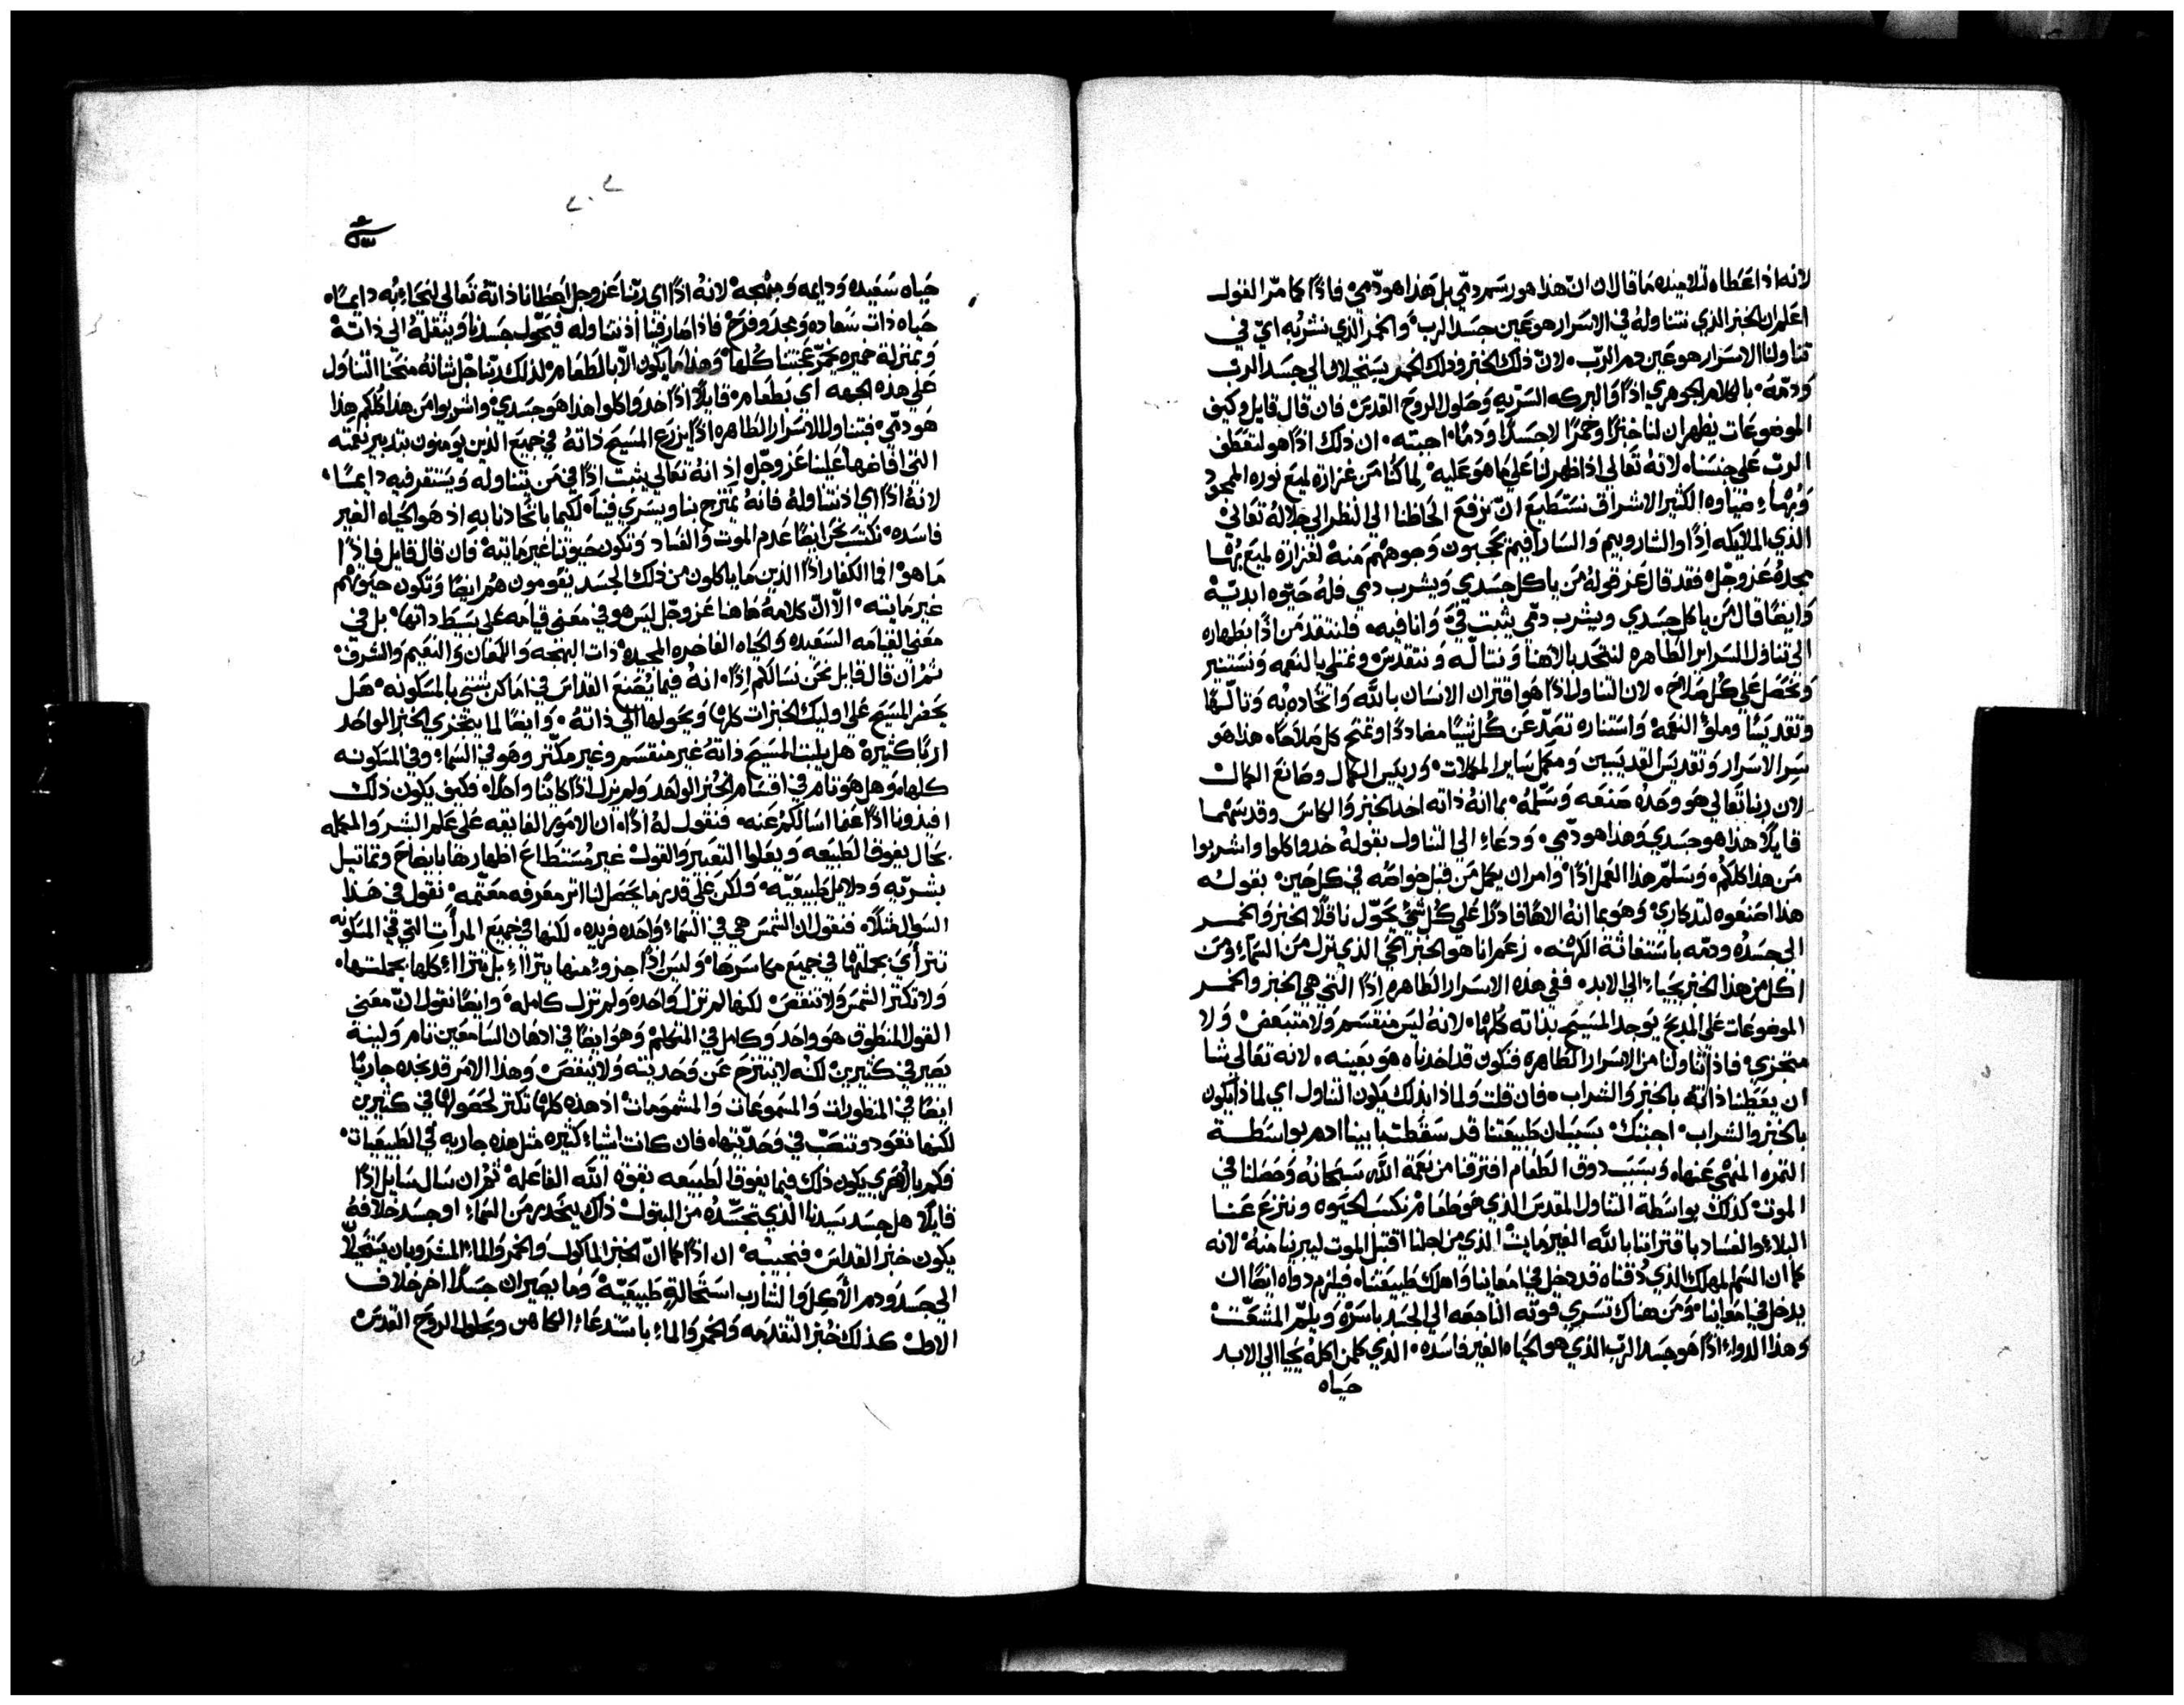 لانه اذ اعطاه لتلاميذه ما قال ان هذا هو رسم دمي بل هذا هو دمي فاذًا كما مر القول
اعلم ان الخبز الذي نتناوله في الاسرار هو عين جسد الرب والخمر الذي نشربه اي في
تناولنا الاسرار هو عين دم الرب لان ذلك الخبز وذلك الخمر يستحيلان الي جسد الرب
ودمه بالكلام الجوهري اذًا والبركه السريه وحلول الروح القدس فان قال قايل وكيف
الموضوعات يظهران لنا خبزًا وخمرًا لا جسدًا ودمًا اجبته ان ذلك اذًا هو لتعطف
الرب علي جنسنا لانه تعالي اذا ظهر لنا علي ما هو عليه لما كنا من غزارة لميع نوره الممجد
وبهاء ضياوه الكثير الاشراق نستطيع ان نرفع الحاظنا الي النظر الي جلاله تعالي
الذي الملايكه اذًا والشاروبيم والسارافيم يحجبون وجوههم منه لغزارة لميع بها
مجده عز وجل فقد قال عز قوله من ياكل جسدي ويشرب دمي فله حيوه ابديه
وايضًا قال من ياكل جسدي ويشرب دمي يثبت في وانا فيه فلنتقدمن اذًا بطهاره
الي تناول السراير الطاهره لنتحد بالاهنا ونتاله ونتقدس ونمتلي بالنعمه ونستنير
ونحصل علي كل صلاح لان التناول اذًا هو اقتران الانسان بالله واتحاده به وتالهًا
وتقديسًا وملو النعمه واستناره تصد عن كل شيًا مضاددًا وتمنح كل صلاحًا هذا هو
سر الاسرار وتقديس القديسين ومكمل ساير المكملات ورييس الكمال وصانع الكمال
لان ربنا تعالي هو وحده صنعه وسلمه بما انه ذاته اخد الخبز والكاس وقدسهما
قايلًا هذا هو جسدي وهذا هو دمي ودعاء الي التناول بقوله خدوا كلوا واشربوا
من هذا كلكم وسلم هذا العمل اذًا وامر ان يكمل من قبل خواصه في كل حين بقوله
هذا اصنعوه لتدكاري وهو بما انه الاهًا قادرًا علي كل شي يحول ناقلًا الخبز والخمر
الي جسده ودمه باستغاثة الكهنه زعم انا هو الخبز الحي الذي نزل من السماء ومن
اكل من هذا الخبز يحياء الي الابد ففي هذه الاسرار الطاهره اذًا التي هي الخبز والخمر
الموضوعات علي المدبح يوجد المسيح بذاته كلها لانه ليس منقسم ولا متبعض ولا
متجزي فاذا تناولنا من الاسرار الطاهره فنكون قد اخدناه هو بعينه لانه تعالي شا
ان يعطنا ذاته بالخبز والشراب فان قلت ولماذا بذلك يكون التناول اي لماذا يكون
بالخبز والشراب اجبتك بسبب ان طبيعتنا قد سقطت بابينا ادم بواسطة
الثمره المنهي عنها وبسبب دوق الطعام افترقنا من نعمة الله سبحانه وحصلنا في
الموت كذلك بواسطة التناول المقدس الذي هو طعام نكسب الحيوه وننزع عنا
البلاء والفساد باقتراننا بالله الغير مايت الذي من اجلنا اقتبل الموت ليبرينا منه لانه
كما ان السم المهلك الذي دقناه قد دخل في امعاينا واهلك طبيعتنا فيلزم دواه ايضًا ان
يدخل في امعاينا ومن هناك تسري قوته الناجعه الي الجسد باسره ويلم المتشعت
وهذا الدواء اذًا هو جسد الرب الذي هو الحياه الغير فاسده الذي كلمن اكله يحيا الي الابد
حياه
٢٠٢
حياه سعيده ودايمه ومبهجه لانه اذًا اي ربنا عز وجل اعطانا ذاته تعالي لنحياء به دايمًا
حياه ذات سعاده ومجد وفرح فاذا صار فينا اذ نتناوله فيحول جسدنا وينقله الي ذاته
وبمنزلة خميره يخمر عجنتنا كلها وهذا ما يكون الا بالطعام لذلك ربنا جل شانه منحنا التناول
علي هذه الجهه اي بطعام قايلًا اذًا خدوا كلوا هذا هو جسدي واشربوا من هذا كلكم هذا
هو دمي فتناول الاسرار الطاهره اذًا يزرع المسيح داته في جميع الذين يومنون بتدبير نعمته
التي افاضها علينا عز وجل اذ انه تعالي يثبت اذًا في من يتناوله ويستقر فيه دايمًا
لانه اذًا اي اذ نتناوله فانه يمتزج بنا ويسري فينا لكيما باتحادنا به اذ هو الحياه الغير
فاسده نكتسب نحن ايضًا عدم الموت والفساد وتكون حيوتنا غير مايته فان قال قايل فاذًا
ما هو افا الكفار اذًا الذين ما ياكلون من ذلك الجسد يقومون هم ايضًا وتكون حيوتهم
غير مايته الا ان كلامه هاهنا عز وجل ليس هو في معني قيامه علي بسط داتها بل في
معني القيامه السعيده والحياه الفاخره المجيده ذات البهجه واللمعان والنعيم والشرف
ثم ان قال قايل نحن نسالكم اذًا انه فيما يصنع القداس في اماكن شتي بالمسكونه هل
يحضر المسيح علي اوليك الخبزات كلها ويحولها الي ذاته وايضًا لما يتجزي الخبز الواحد
اربًا كثيرة هل يلبت المسيح داته غير منقسم وغير مكتر وهو في السماء وفي المسكونه
كلها وهل هو تام في اقسام الخبز الواحد ولم يزل اذًا كاينًا واحدًا فكيف يكون ذلك
افيدونا اذًا عما اسالكم عنه فنقول له اذًا ان الامور الفايقه علي علم البشر والمكمله
بحال يفوق الطبيعه ويعلوا التعبير والقول غير مستطاع اظهارها بايضاح وتماتيل
بشريه ودلايل طبيعيه ولكن علي قدر ما يحصل لنا اتر معرفه معتمه نقول في هذا
السوال متلًا فنقول ان الشمس هي في السماء واحده فريده لكنها في جميع المرات التي في المسكونه
تترأي بجملتها في جميع مكاسرها وليس اذًا جزوء منها يتراأ بل يترااء كلها بجملتها
ولا تكتر الشمس ولا تنقص لكنها لم تزل واحده ولم تزل كامله وايضًا نقول ان معني
القول المنطوق هو واحد وكامل في المتكلم وهو ايضًا في ادهان السامعين تام ولينه
يصير في كثيرين لكنه لا ينتزح عن وحديته ولا ينقص وهذا الامر قد نجده جاريًا
ايضًا في المنظورات والمسموعات والمشمومات اذ هذه كلها تكتر لحصولها في كثيرين
لكنها تعود وتنصب في وحدتها فان كانت اشياء كثيره مثل هذه جاريه في الطبيعيات
فكم بالأحري يكون ذلك فيما يفوق الطبيعه بقوة الله الفاعله ثم ان سال سايل اذًا
قايلًا هل جسد سيدنا الذي تجسده من البتول ذاك ينحدر من السماء او جسد خلافه
يكون خبز القداس فنجيبه ان اذًا كما ان الخبز الماكول والخمر والماء المشروبان يستحيلا
الي جسد ودم الأكل والشارب استحالة طبيعيه وما يصيران جسدًا اخر خلاف
الاول كذلك خبز التقدمه والخمر والماء باستدعاء الكاهن وبحلول الروح القدس